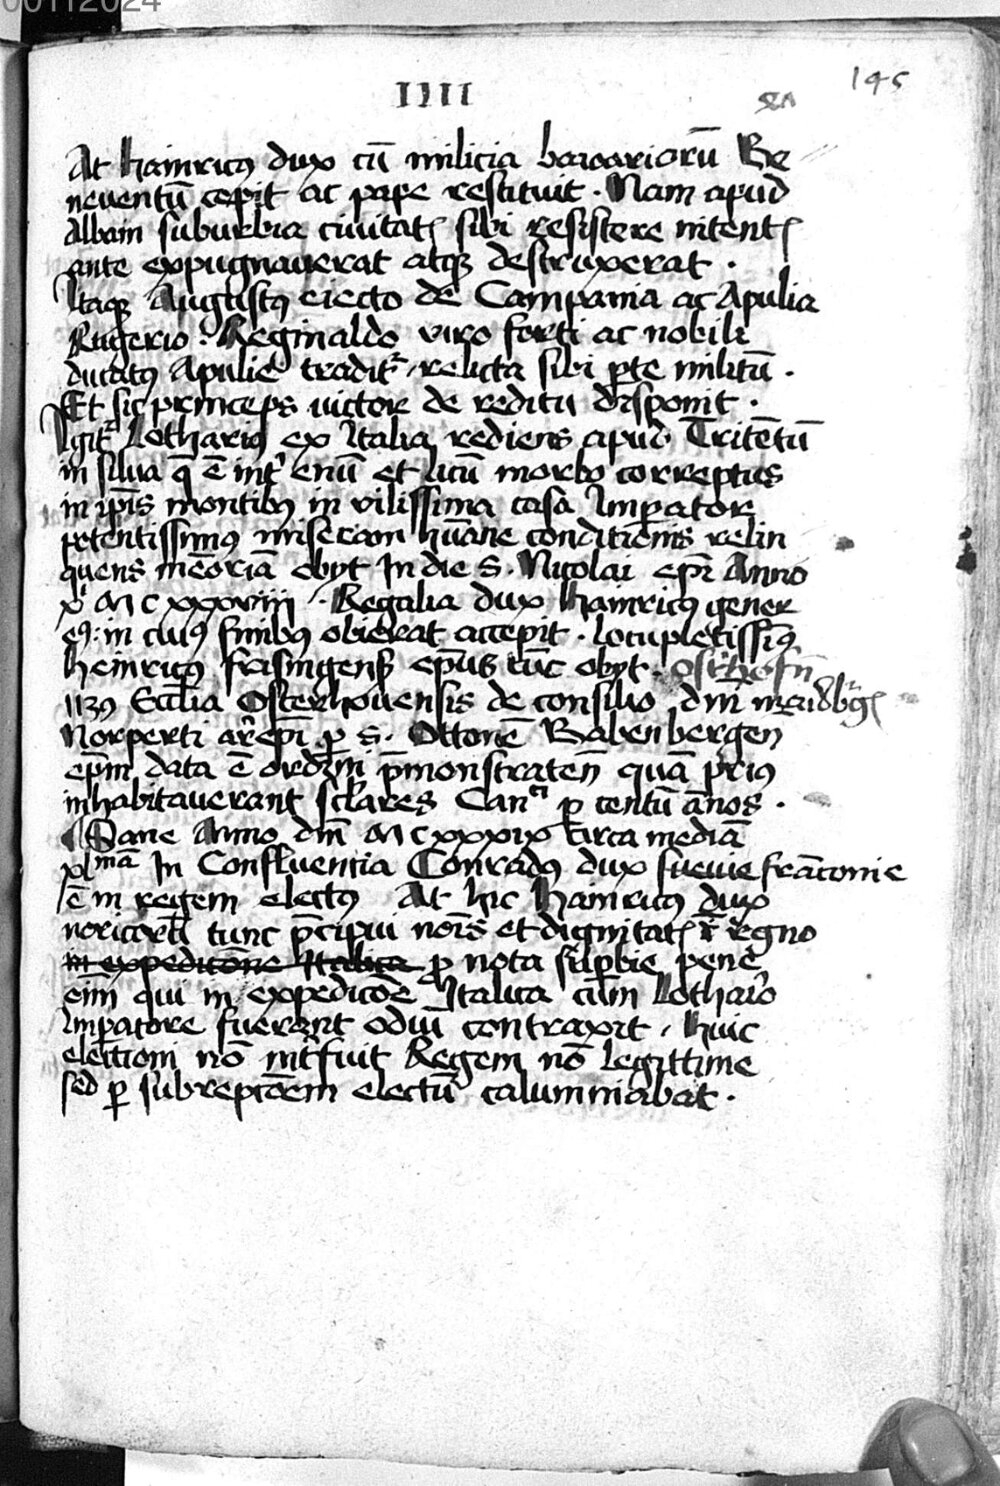 00112024
IIII
145
At Hainricus dux cū milicia bawariorū Be
neventū cepit ac pape restituit . Nam apud
Albam suburbia civitatꝭ sibi resistere nitentꝭ
ante expugnaverat atqꝫ destruxerat .
Itaqꝫ Augustꝰ eiecto de Campania ac Apulia
Rugerio . Reginaldo viro forti ac nobili
ducatꝰ Apulie tradit᷑ , relicta sibi ꝑte militū .
Et sic princeps victor de reditu disponit .
Igit᷑ Lothariꝰ ex Italia rediens apud Tritētū
in silva q̄ ē int̉ enū et licū morbo correptus
in ip̄is montibꝰ in vilissima casa Imperator
potentissimꝰ miseram hūane conditionis relin
quens mēoriā obyt In die S . Nicolai ep̄i Anno
xi M C xxxviii . Regalia dux Hainricus gener
eiꝰ : in cuiꝰ finibꝰ obierat accepit . Locupletissimꝰ
Heinricus frisingensis ep̄us tūc obyt .
1139 Eccl̄ia Osterhovensis de consilio dm̄ maidb̉gꝭ
Norperti ar̄ep̄i ꝑ S . Ottonē Babenbergen
ep̄m data ē ordīni p̄monstraten̄ quā prius
inhabitaverant sc̄lares Can ꝑ centū ān̄os .
Sane Anno dm̄ M C xxxix circa mediā
xlmā In Confluentia Conradus dux suevie frāconie
ē in regem electꝰ At hic Hainricus dux
noricorū tunc p̄cipui nōis et dignitatꝭ ī regno
in expedicōne Italica ꝑ nota suꝑbie pene
eīm qui in expedicōe Italica cum Lothar̉o
Imꝑatore fuerant odiū contraxit , huic
electioni nō int̉fuit Regem nō legittime
sed ꝑ subrepcōem electū calumniabat᷑ .